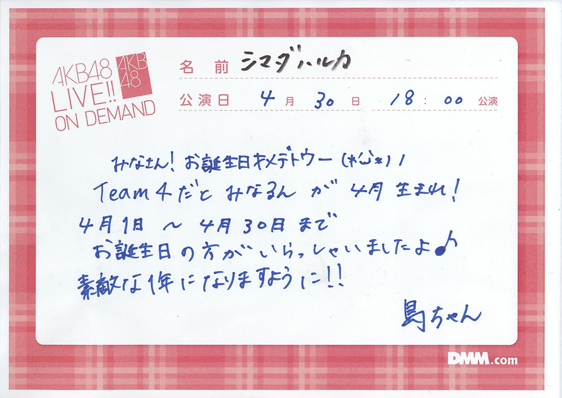 AKB48
LIVE!!
ON DEMAND
AKB
48
名前 シマダハルカ
公演日 4月30日 18:00公演
みなさん!お誕生日オメデトウー(*'ω'*)ノ
Team4だと みなるん が 4月 生まれ!
4月1日 ~ 4月30日 まで
お誕生日の方が いらっしゃいましたよ♪
素敵な1年に なりますように!!
島ちゃん
DMM.com